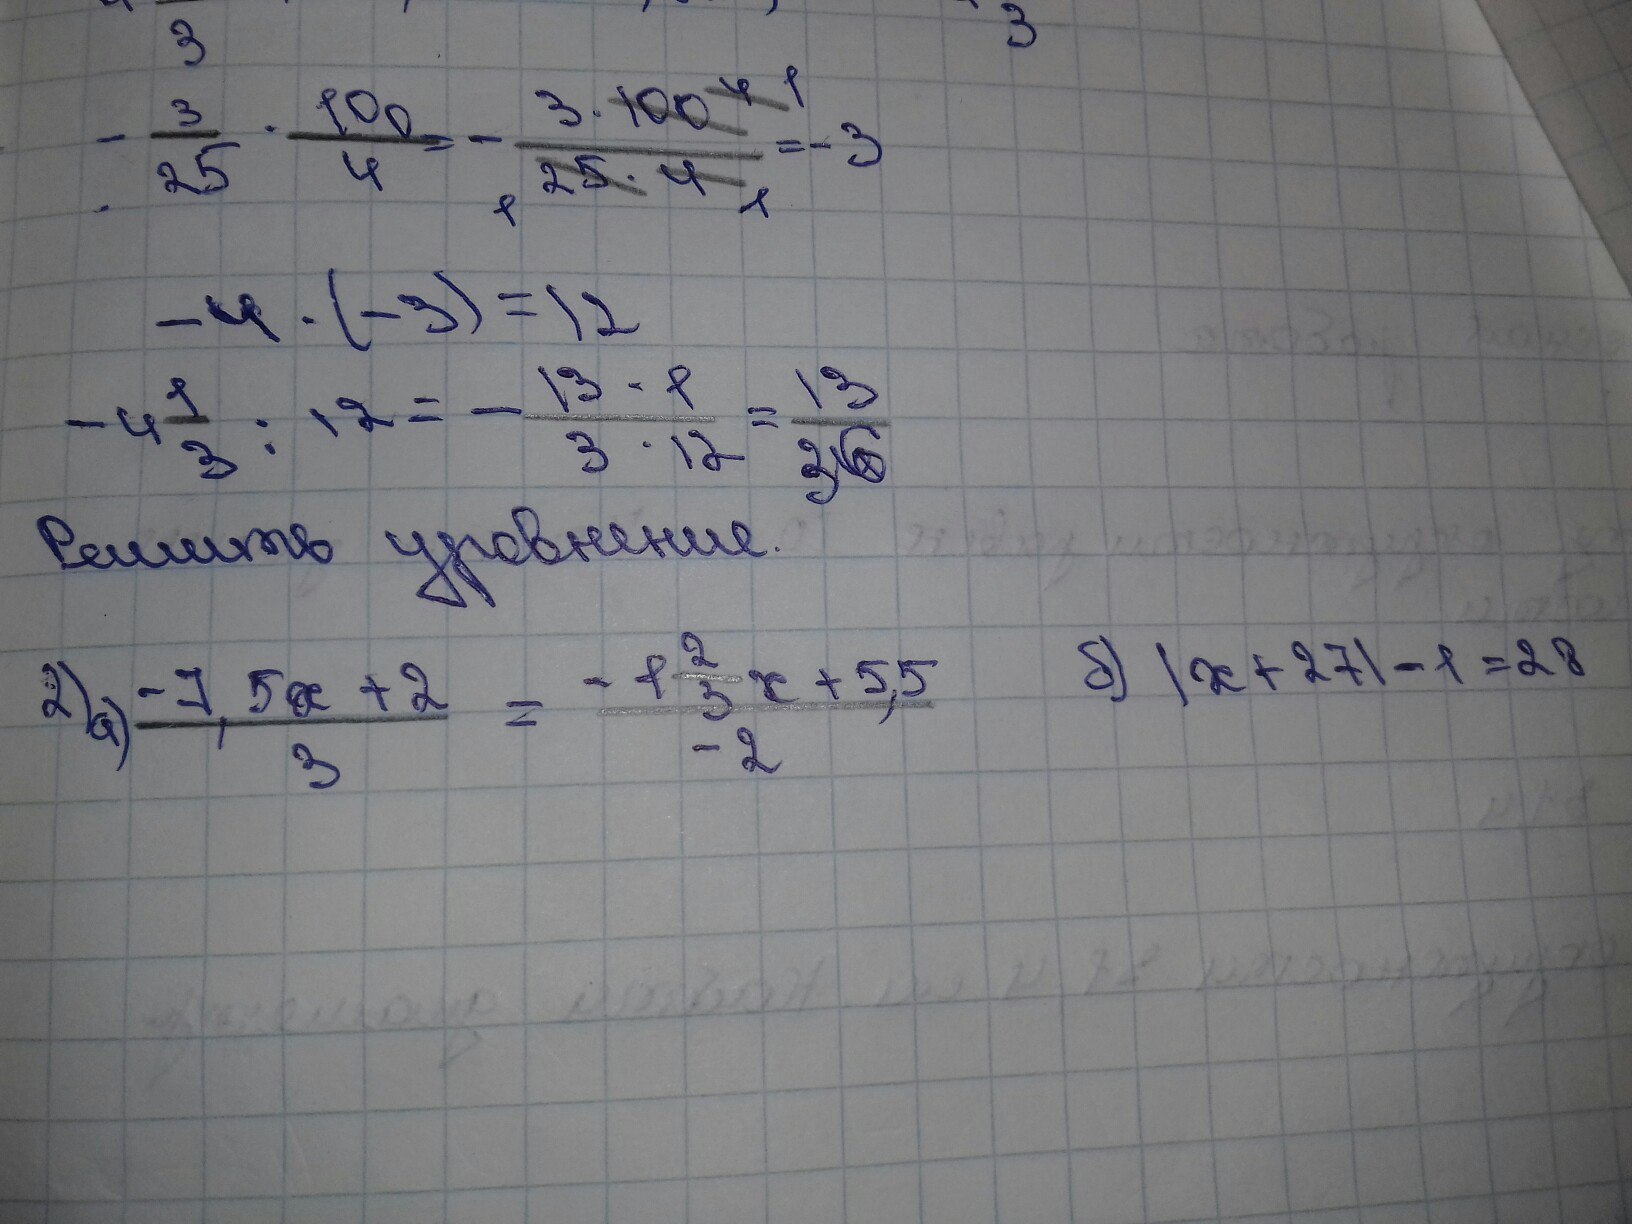 3 3
- 3/25 · 100/4 = - 3·100 4 1/1 25·4 1 = -3
-4 · (-3) = 12
-4 1/3 : 12 = - 13·1/3·12 = 13/36
Решить уравнение.
2) а) -7,5x+2/3 = -1 2/3 x+5,5/-2 б) |x+27|-1=28